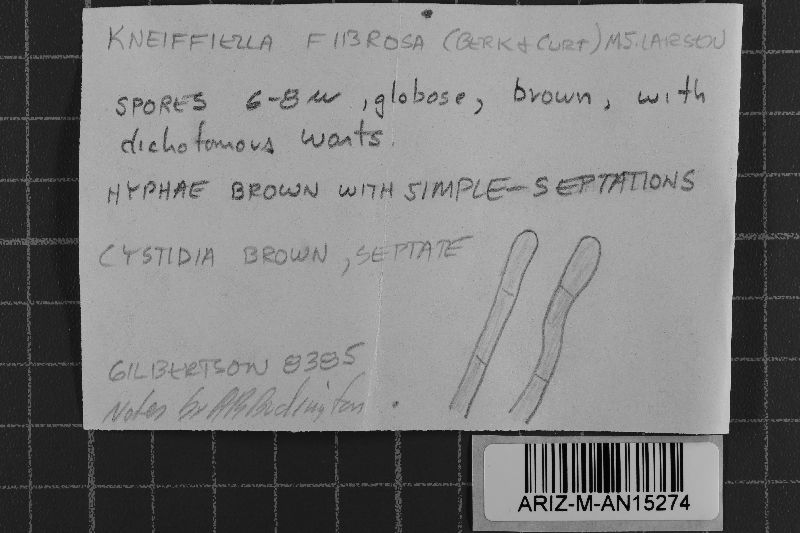 KNEIFFIELLA FIBROSA (BERK & CURT) M.J. LARSON
SPORES 6-8 u, globose, brown, with
dichotomous warts.
HYPHAE BROWN WITH SIMPLE-SEPTATIONS
CYSTIDIA BROWN, SEPTATE
GILBERTSON 8385
Notes by
ARIZ-M-AN15274